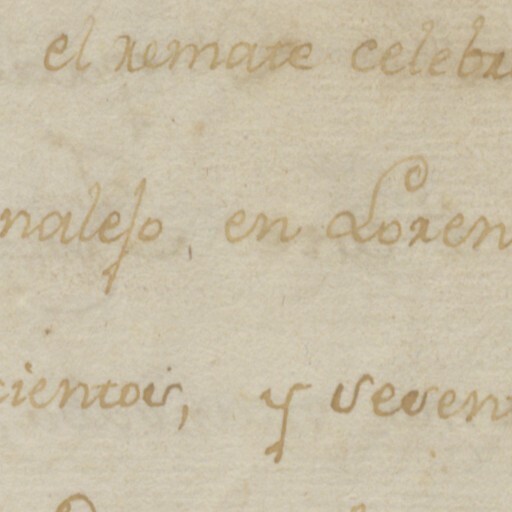 el remate celebr
nalejo, en Loren
cientos, y sesen